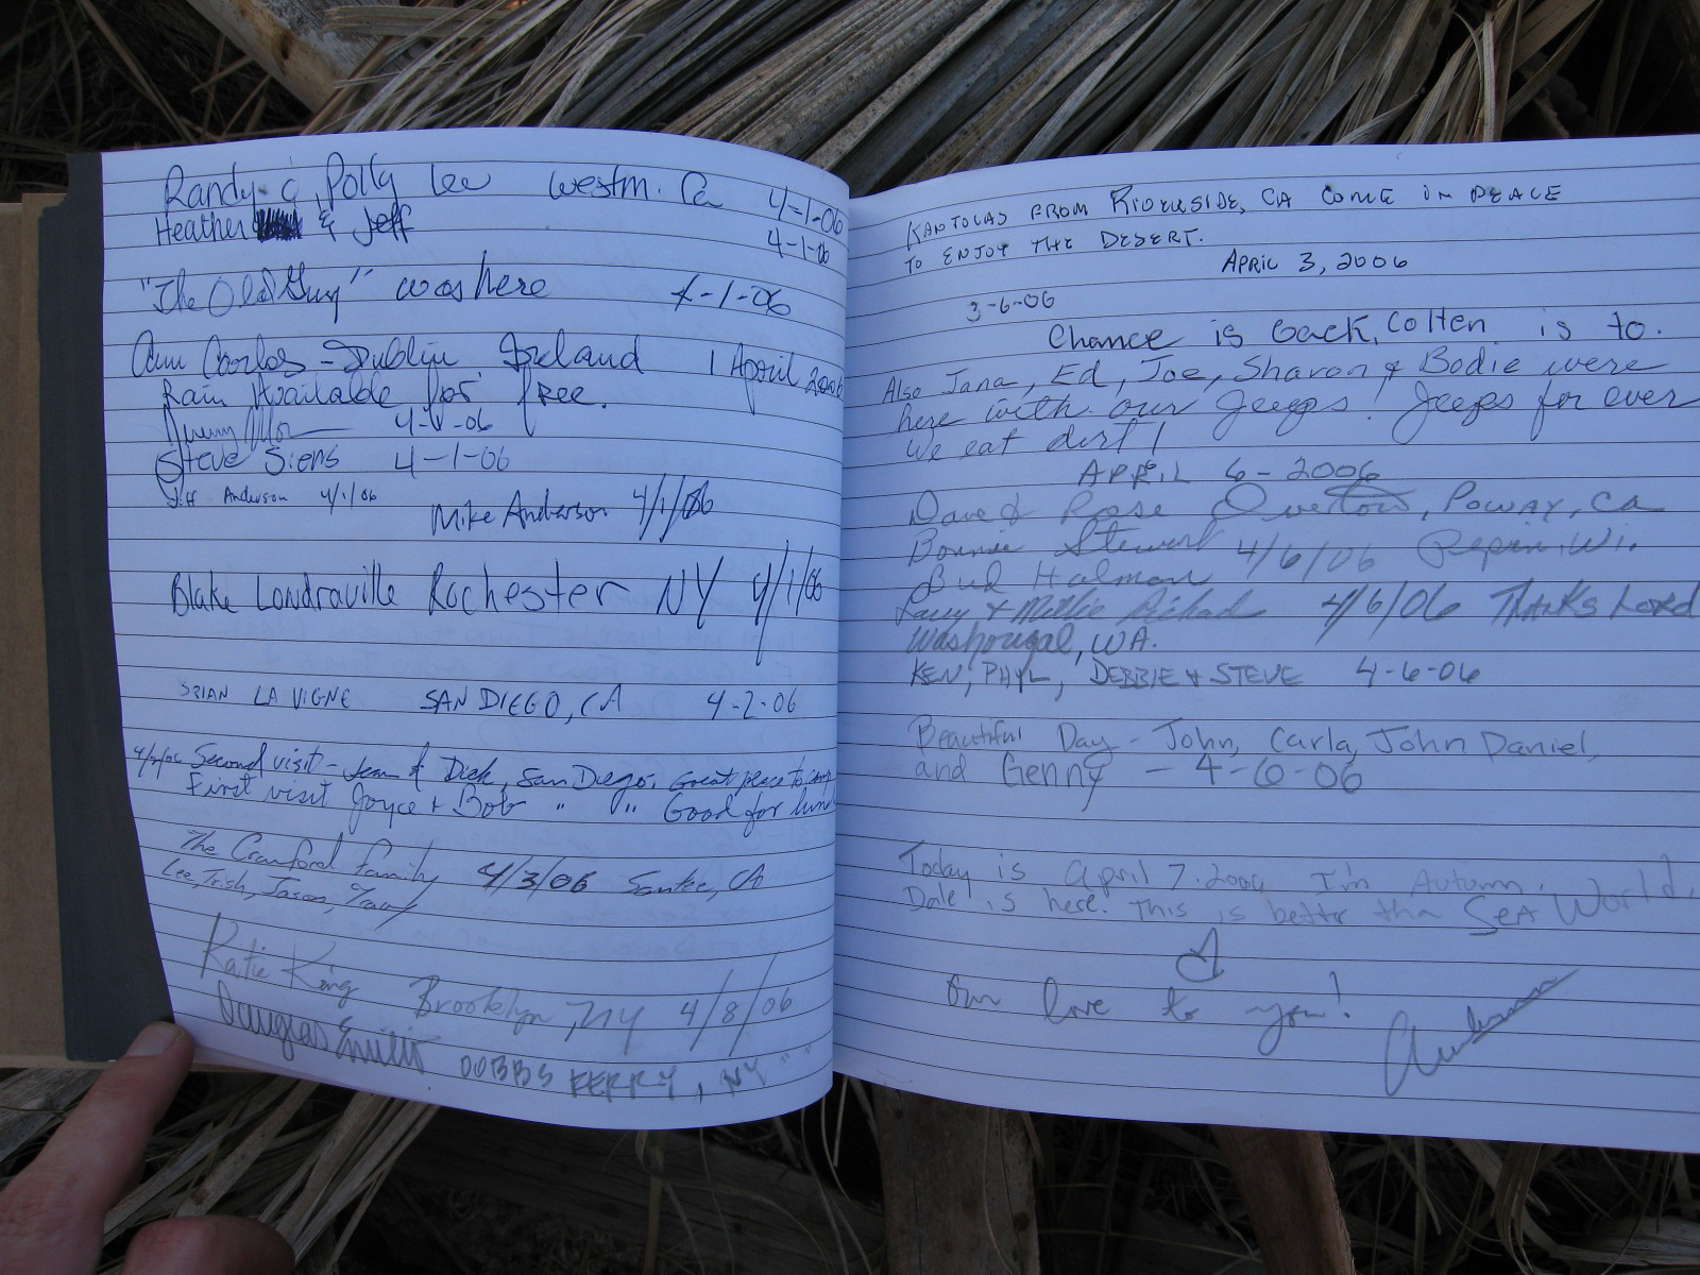 Randy & Polly Lee Westm. Ca 4-1-06
Heather & Jeff 4-1-06
"The Old Guy" was here 4-1-06
Carlos - Dublin, Ireland 1 April 2006
Rain Available for free.
4-1-06
Steve Siens 4-1-06
Jeff Anderson 4/1/06
Mike Anderson 4/1/06
Blake Londraville Rochester NY 4/1/06
BRIAN LA VIGNE SAN DIEGO, CA 4-2-06
Second visit - Jean & Dick, San Diego, Great place to camp
First visit Joyce + Bob " " Good for
The Cranford Family 4/3/06 Santee, CA
Lee, Trish, Jason,
Katie King Brooklyn, NY 4/8/06
Douglas DOBBS FERRY, NY
KANTOLAS FROM RIVERSIDE, CA COME IN PEACE
TO ENJOY THE DESERT.
APRIL 3, 2006
3-6-06
Chance is back, Colten is to.
Also Jana, Ed, Joe, Sharon & Bodie were
here with our Jeeps! Jeeps for ever
We eat dirt!
APRIL 6-2006
Dave & Rose Overton, Poway, Ca
Bonnie Stewart 4/6/06 Pepin, Wi.
Bud Halman
Larry & Millie 4/6/06 THANKS LORD
Washougal, WA.
KEN, PHYL, DEBBIE & STEVE 4-6-06
Beautiful Day - John, Carla, John Daniel,
and Genny - 4-6-06
Today is April 7. 2006 I'm Autumn.
Dale is here. This is better tha SeA World.
Our love to you!